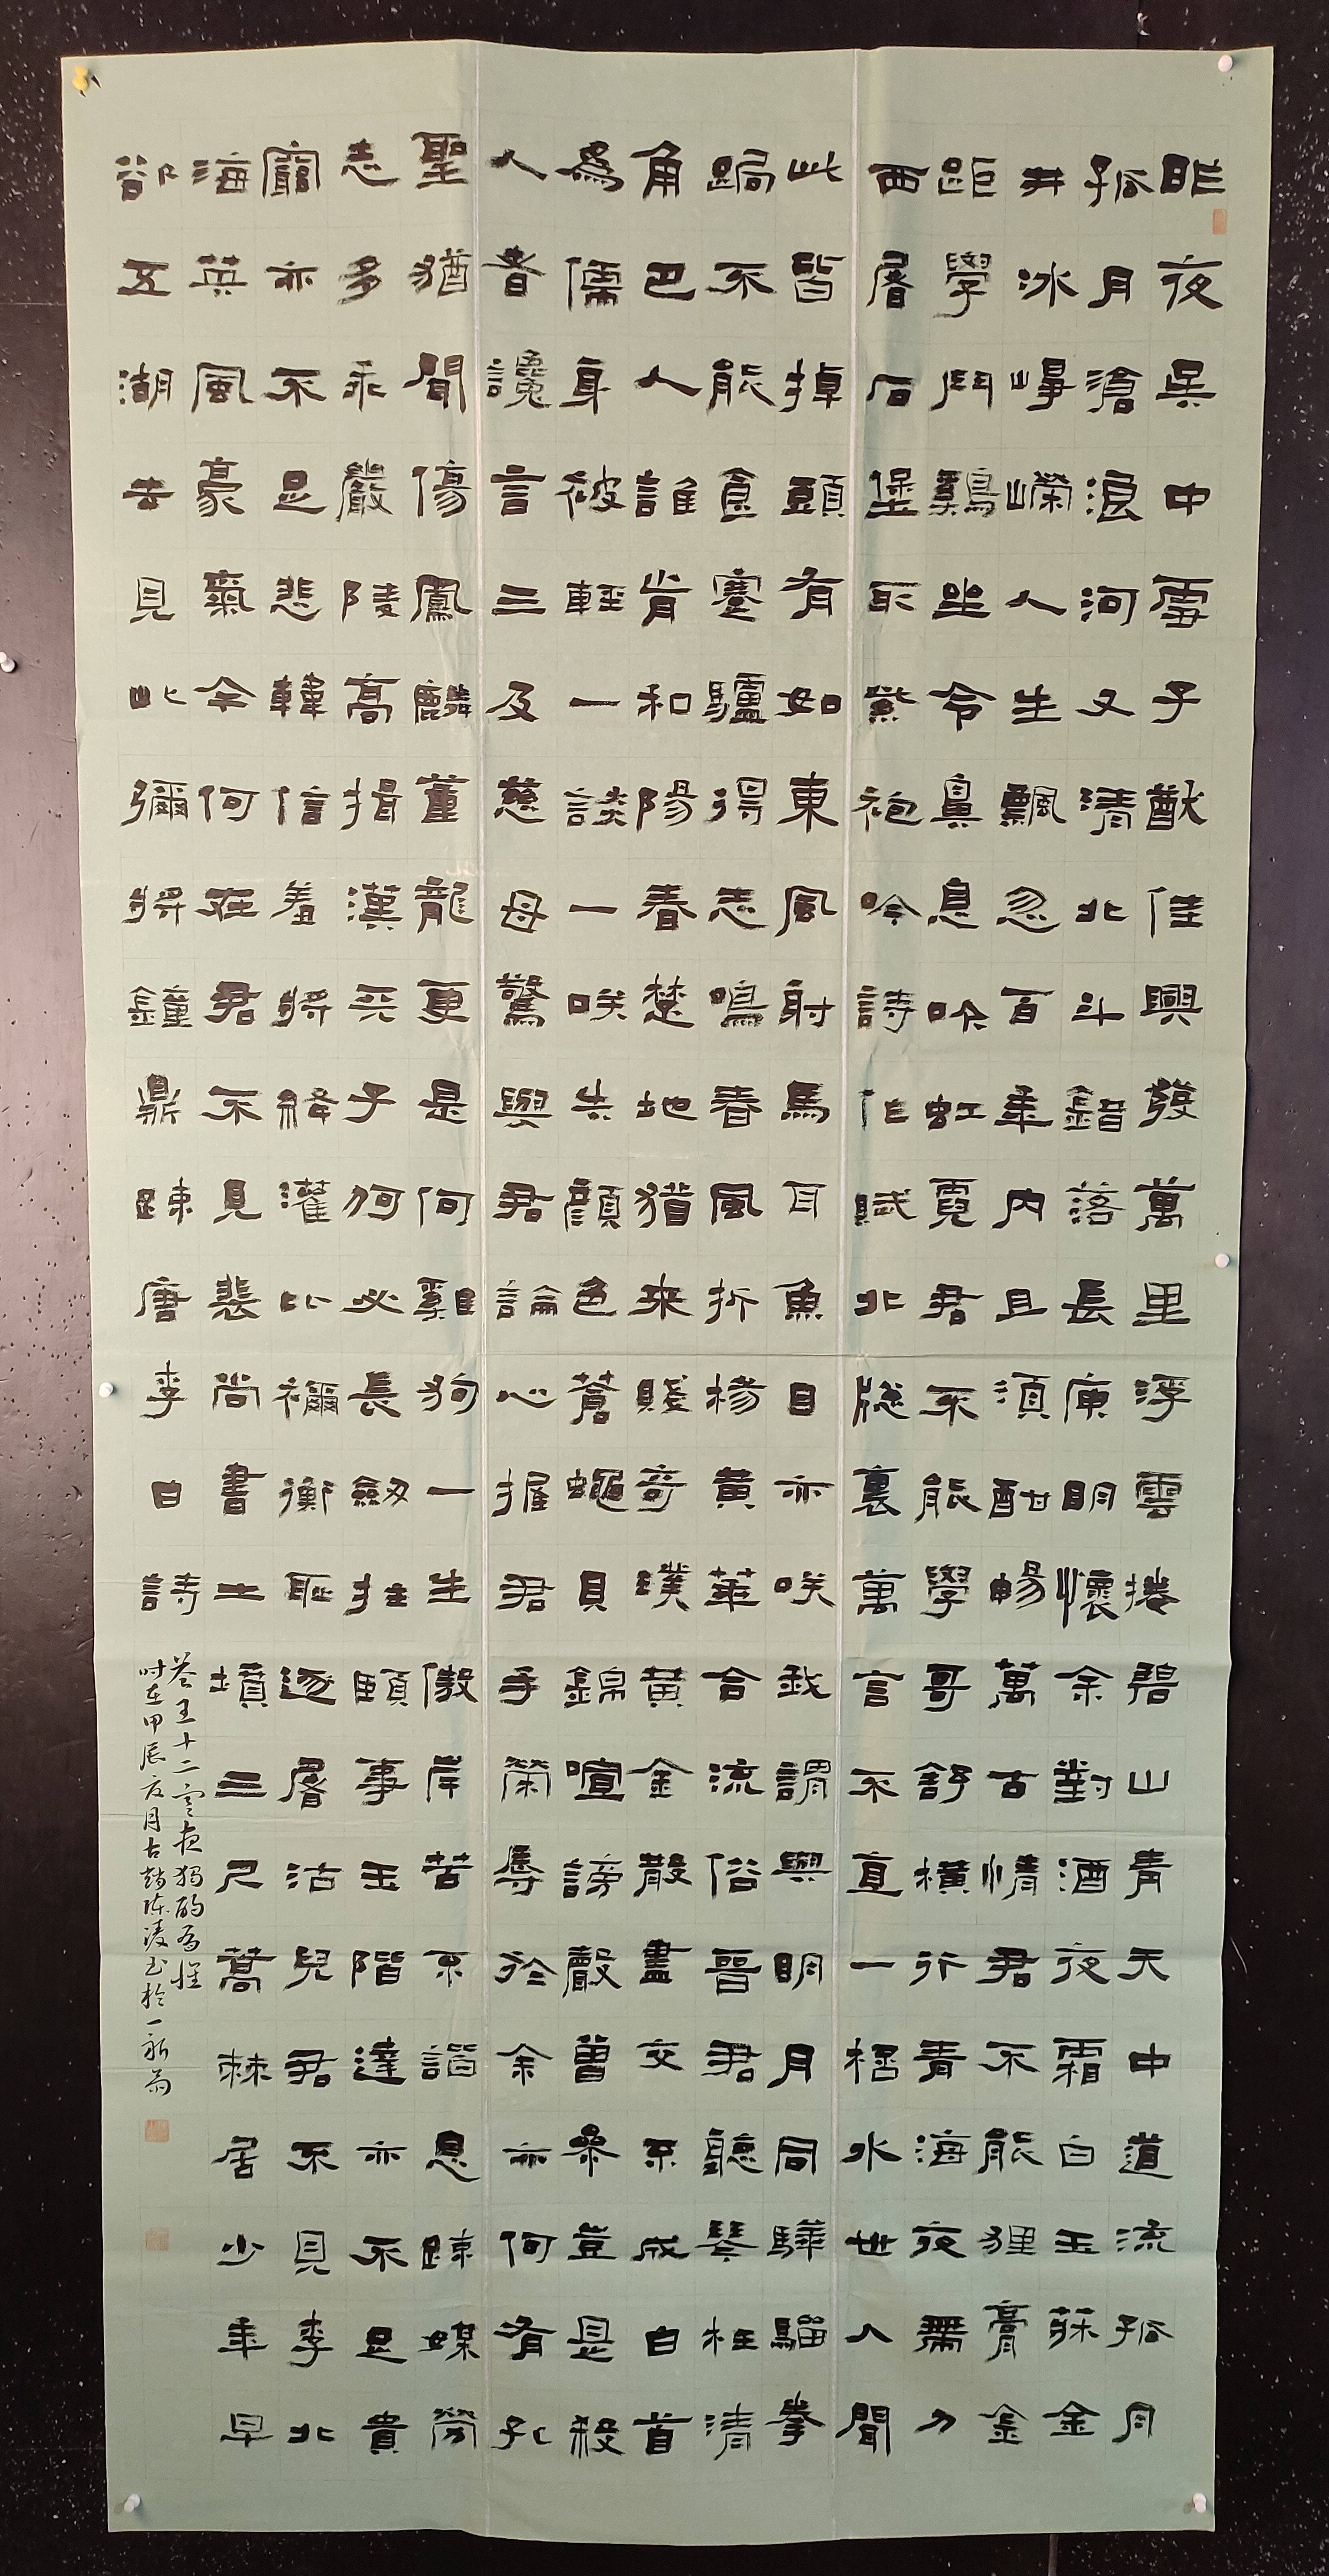 昨夜吳中雪子猷佳興發萬里浮雲捲碧山青天中道流孤月
孤月滄浪河又清北斗錯落長庚明懷余對酒夜霜白玉牀金
井冰崢嶸人生飄忽百年內且須酣暢萬古情君不能狸膏金
距學鬥鷄坐令鼻息吹虹霓君不能學哥舒橫行青海夜帶刀
西屠石堡取紫袍吟詩作賦北牕裏萬言不直一桮水世人聞
此皆掉頭有如東風射馬耳魚目亦咲我謂與明月同驊騮拳
跼不能食蹇驢得志鳴春風折楊黃華合流俗晉君聽琴枉清
角巴人誰肯和陽春楚地猶来賤奇璞黃金散盡交不成白首
為儒身被輕一談一咲失顏色蒼蠅貝錦喧謗聲曾參豈是殺
人者讒言三及慈母驚與君論心握君手榮辱於余亦何有孔
聖猶聞傷鳳麟董龍更是何雞狗一生傲岸苦不諧恩疎媒勞
志多乖嚴陵高揖漢天子何必長劍拄頤事玉階達亦不足貴
窮亦不足悲韓信羞將絳灌比禰衡恥逐屠沽兒君不見李北
海英風豪氣今何在君不見裴尚書土墳三尺蒿棘居少年早
郤五湖去見此彌將鐘鼎疎唐李白詩
答王十二寒夜獨酌有懷
时在甲辰夏月古越陈淩书於一新斋